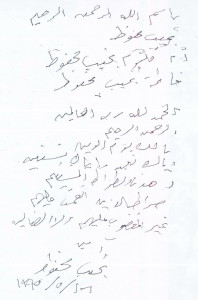 باسم الله الرحمن الرحيم
نجيب محفوظ
أم كلثوم نجيب محفوظ
فاطمة نجيب محفوظ
الحمد لله رب العالمين
الرحمن الرحيم
مالك يوم الدين
إياك نعبد وإياك نستعين
اهدنا الصراط المستقيم
صراط الذين أنعمت عليهم
غير المغضوب عليهم ولا الضالين
نجيب محفوظ